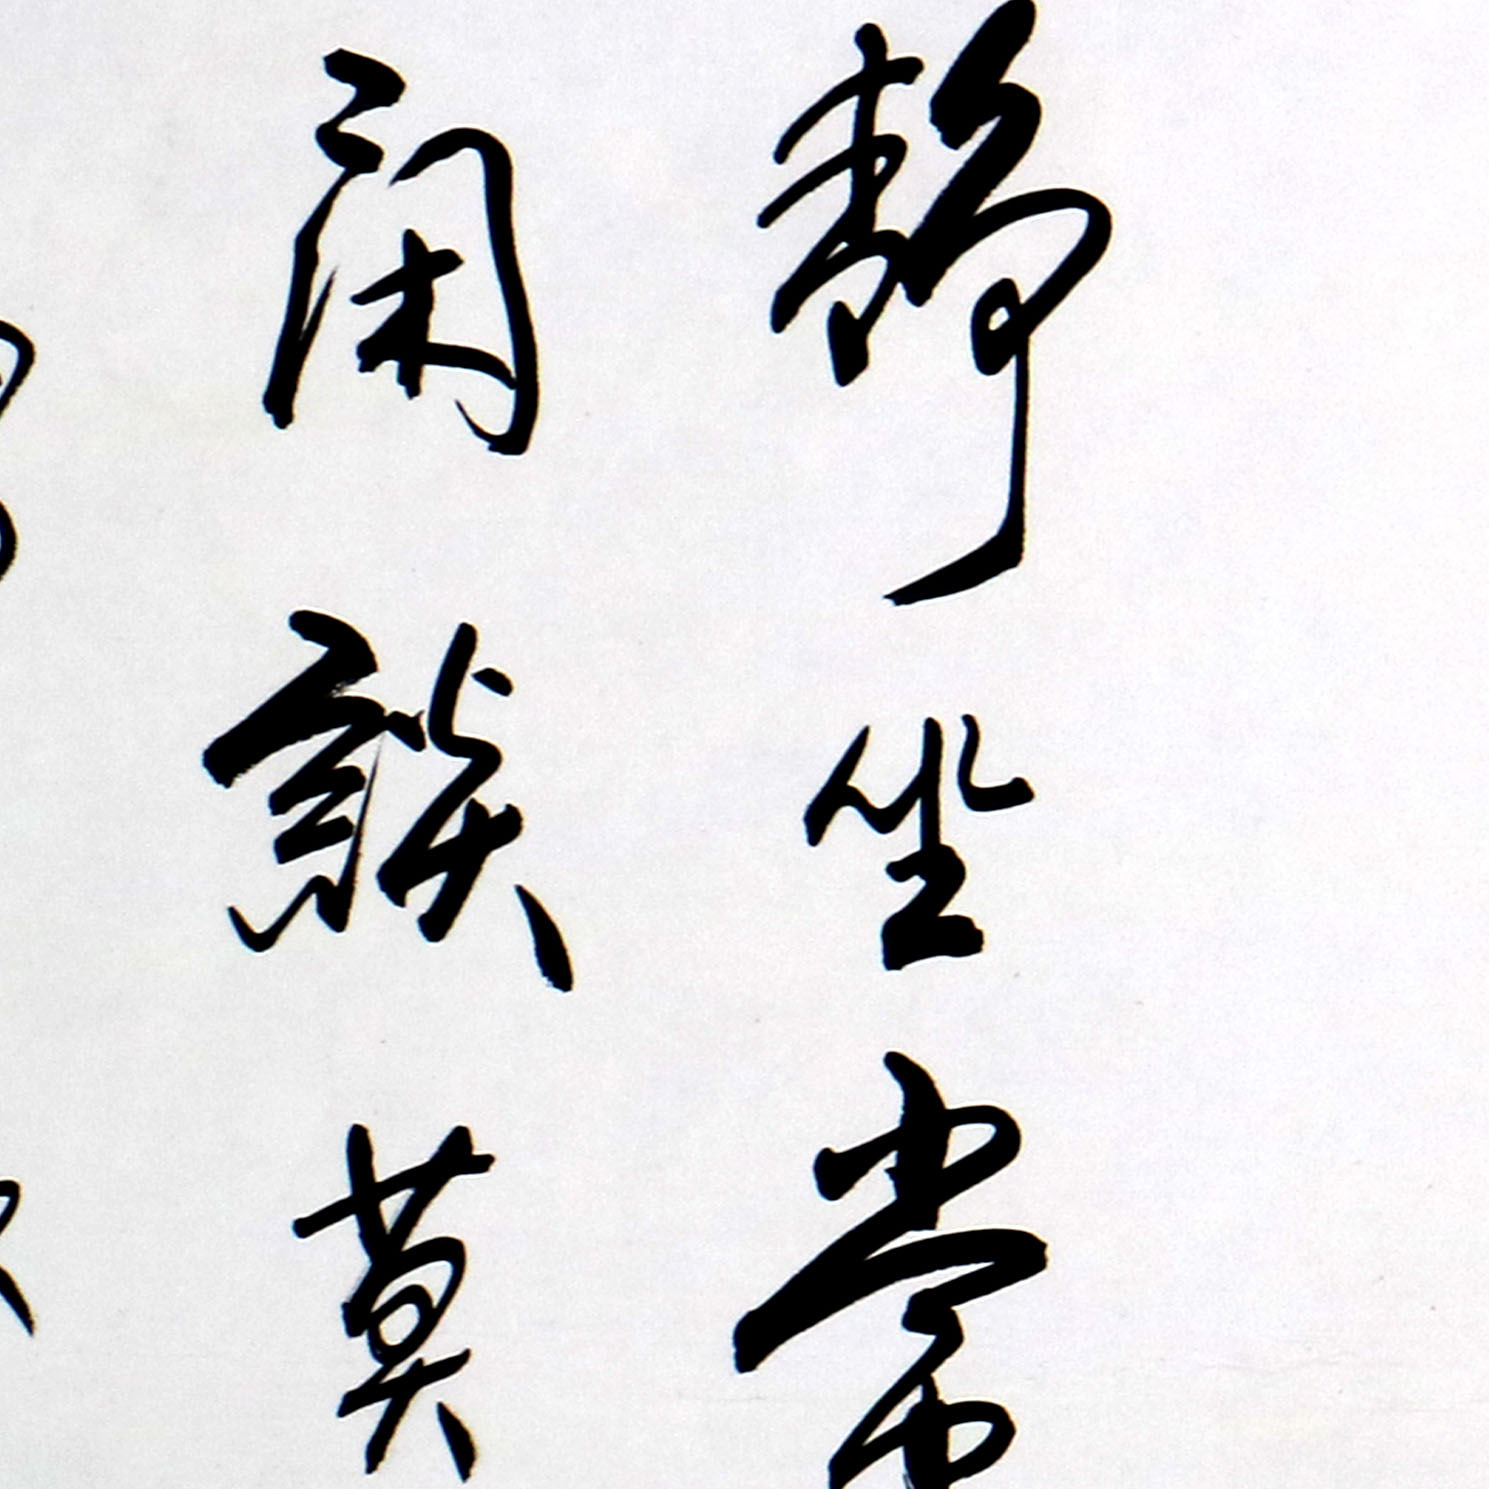 静坐常
闲谈莫